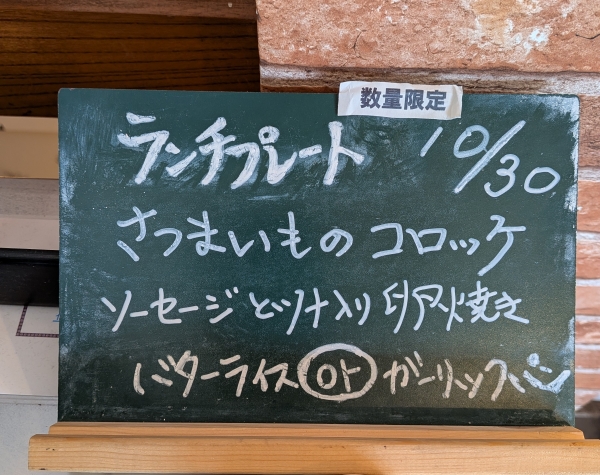 数量限定
ランチプレート 10/30
さつまいものコロッケ
ソーセージとツナ入り卵焼き
バターライス or ガーリックパン